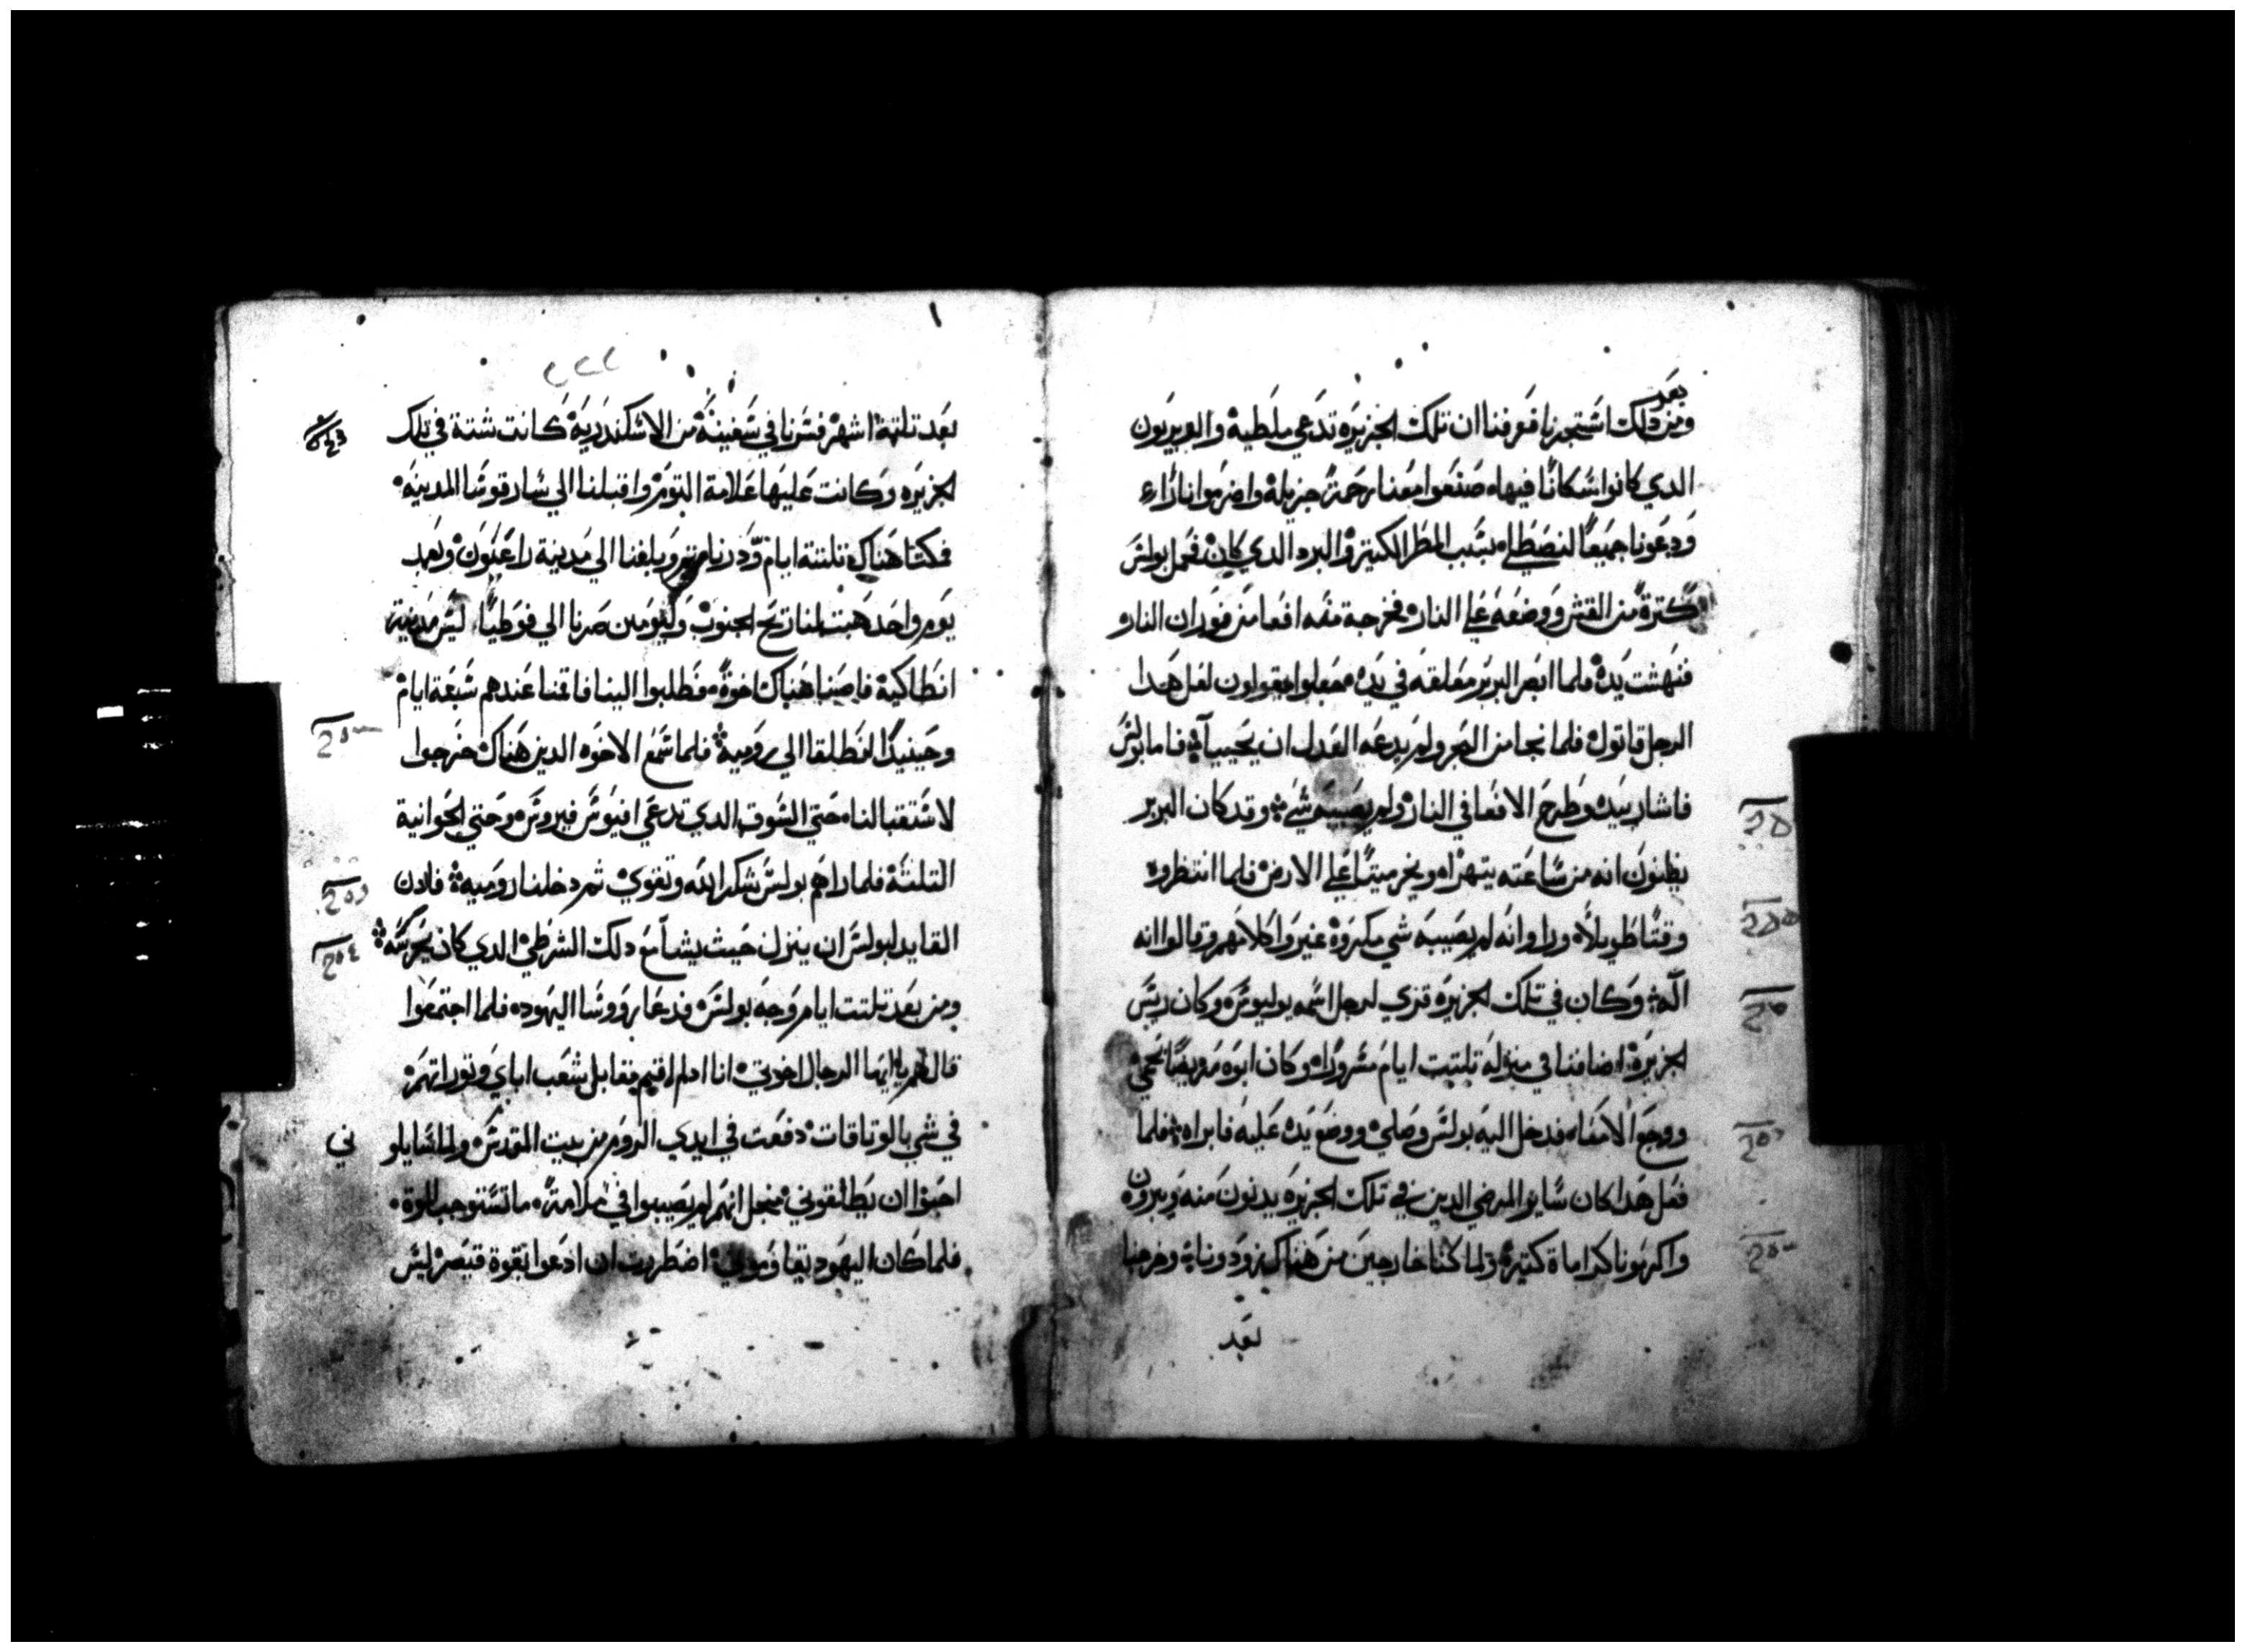 بعد
ومن دلك اشتجرنا فعرفنا ان تلك الجزيره تدعي ملطيه والبربريون
الدي كانوا سكانًا فيها صنعوا معنا رحمة جزيلة واضرموا نارًا
ودعونا جميعًا لنصطلي بسبب المطر الكتير والبرد الدي كان فحمل بولس
كترة من القش ووضعه علي النار فخرجة منه افعا من فوران النار
فنهشت يده فلما ابصر البربر معلقه في يده جعلوا يقولون لعل هدا
الرجل قاتول فلما نجا من البحر ولم يدعه العدل ان يحييا فاما بولس
فاشار بيده وطرح الافعا في النار ولم يصيبه شي وقد كان البربر
يظنون انه من ساعته يتهرا ويخر ميتًا علي الارض فلما انتظروه
وقتًا طويلًا وراوا انه لم يصيبه شي مكروه غيروا كلامهم وقالوا انه
الّه وكان في تلك الجزيره قري لرجل اسمه بوليوس وكان ريس
الجزيرة اضافنا في منزله تلتت ايام مسرورًا وكان ابوه مريضًا بحمي
ووجع الامعا فدخل اليه بولس وصلي ووضع يده عليه فابراه فلما
فعل هدا كان سايرا المرضي الدين في تلك الجزيره يدنون منه ويبرون
واكرمونا كراماة كتيرة ولما كنا خارجين من هناك زودونا وخرجنا
بعد
بعد تلتة اشهر فسرنا في سفينة من الاسكندرية كانت شتة في تلك
الجزيره وكانت عليها علامة التوم واقبلنا الي ساراقوسا المدينه
فمكتنا هناك تلتة ايام ودرنا من ثم وبلغنا الي مدينة راغيون وبعد
يوم واحد هبت لنا ريح الجنوب وليومين صرنا الي فوطيا ليس مدينة
انطاكية فاصبنا هناك اخوة فطلبوا الينا فاقمنا عندهم سبعة ايام
وحينيدًا انطلقنا الي رومية فلما سمع الاخوه الدين هناك خرجوا
لاستقبالنا حتي السوق الدي تدعي افيوس فيروس وحتي الحوانية
التلتة فلما راهم بولس شكر الله وتقوي ثم دخلنا روميه فادن
القايد لبولس ان ينزل حيث يشا مع دلك الشرطي الدي كان يحرسه
ومن بعد تلتت ايام وجه بولس فدعا روسا اليهود فلما اجتمعوا
قال لهم يا ايها الرجال اخوتي انا ادلم اقيم مقابل شعب اباي وتوراتهم
في شي بالوتاقات دفعت في ايدي الروم من بيت المقدس ولما سايلوني
احبوا ان يطلقوني منجل انهم لم يصيبوا في ملامة ما تستوجب الموة
فلما كان اليهود يقاوموني اضطررت ان ادعوا بقوة قيصر ليس